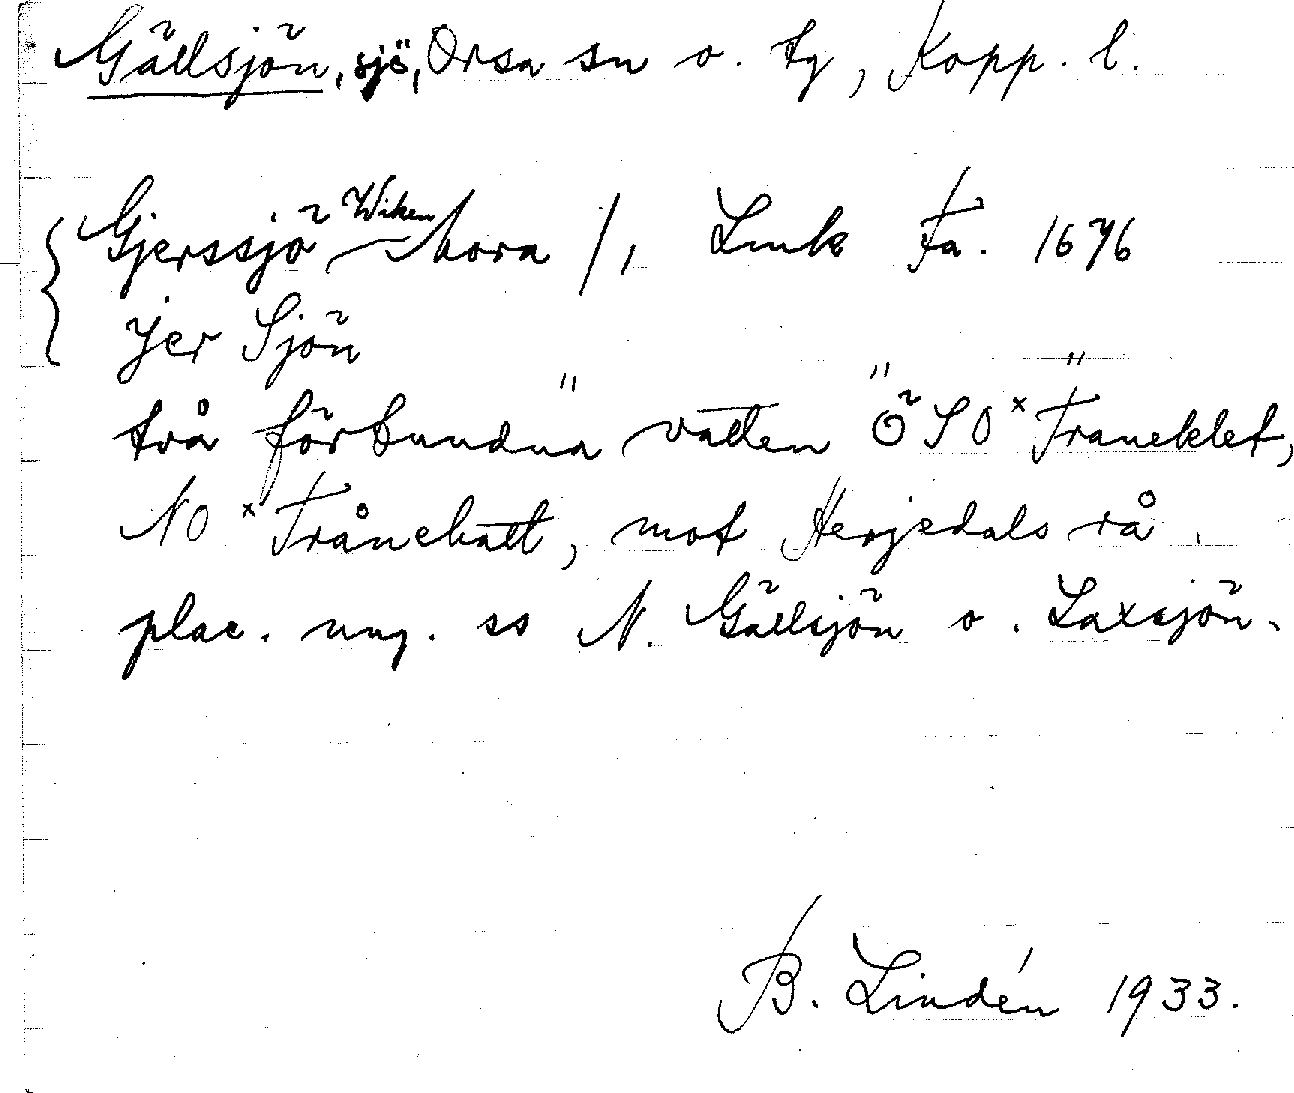 Gällsjön, sjö, Orsa sn o. tg, Kopp. l.
Gjerssjö Wiken Mora /, Lmk Fa. 1676
Jer Sjön
två förbundna vatten ÖSO × Traneklet,
NO × Trånehatt, mot Herjedals rå.
plac. ung. ss N. Gällsjön o. Laxsjön.
B. Lindén 1933.